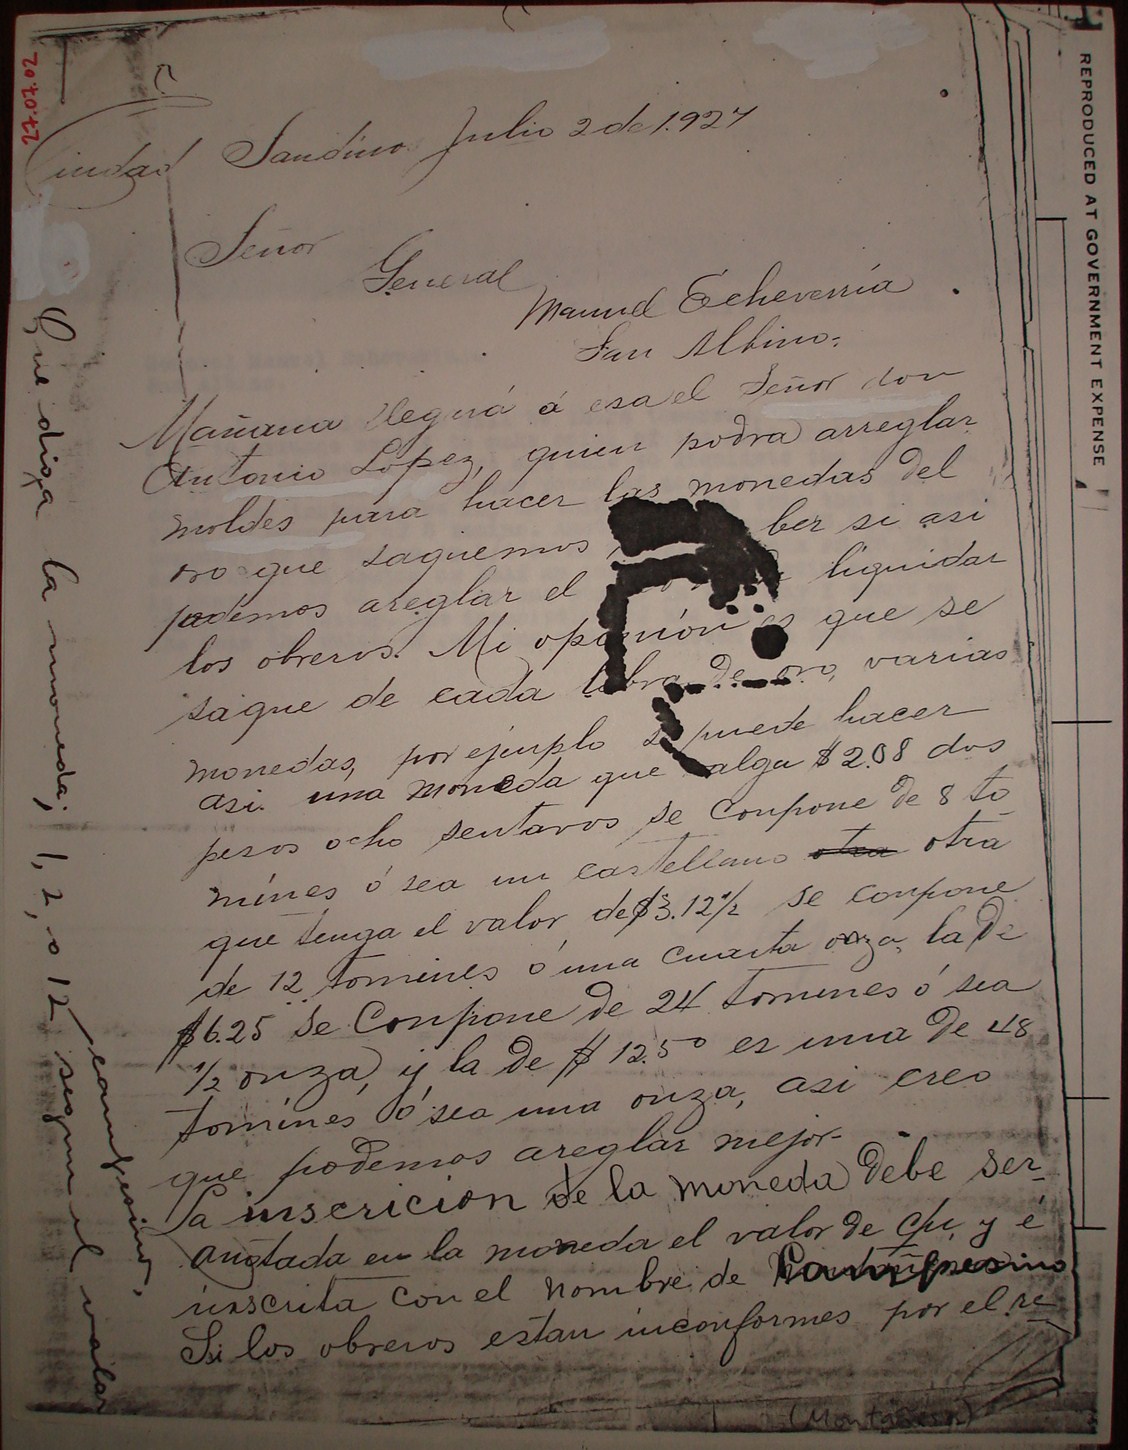 27.07.02
REPRODUCED AT GOVERNMENT EXPENSE
Ciudad Sandino Julio 2 de 1.927
Señor
General
Manuel Echeverría
San Albino.
Mañana llegará á esa el Señor don
Antonio Lopez, quien podra arreglar
moldes para hacer las monedas del
oro que saquemos ber si asi
podemos areglar el liquidar
los obreros. Mi opinión es que se
saque de cada libra de oro, varias
monedas, por ejemplo se puede hacer
asi. una moneda que valga $2.08 dos
pesos ocho sentavos se conpone de 8 to
mínes ó sea un castellano otra otra
que tenga el valor de $3.12 1/2 se conpone
de 12 tomines ó una cuarta onza, la de
$6.25 se Conpone de 24 tomines ó sea
1/2 onza, y la de $12.50 es una de 48
tomínes ó sea una onza, asi creo
que podemos areglar mejor.
La inscricion de la moneda debe ser
anotada en la moneda el valor de c/u, y é
inscrita con el nombre de Campesino
Si los obreros estan inconformes por el re
(Montañesa)
Que diga la moneda; 1, 2, o 12 campesinos,
segun el valor